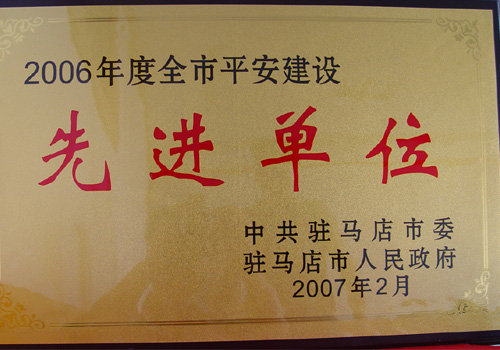 2006年度全市平安建设
先进单位
中共驻马店市委
驻马店市人民政府
2007年2月